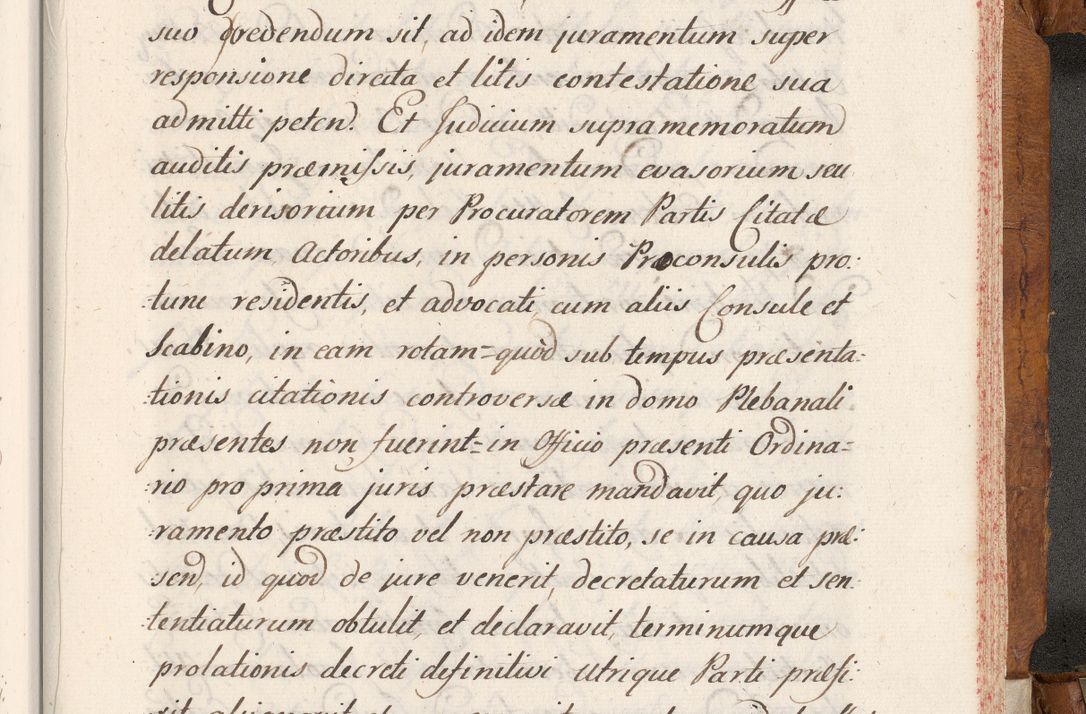 suo credendum sit, ad idem juramentum super
responsione directa et litis contestatione sua
admitti peten? Et Judicium supramemoratum
auditis præmissis, juramentum evasorium seu
litis derisorium per Procuratorem Partis Citatæ
delatum Actoribus, in personis Proconsulis pro:
:tunc residentis, et advocati, cum aliis Consule et
Scabino, in eam rotam=quod sub tempus præsenta:
:tionis citationis controversæ in domo Plebanali
præsentes non fuerint=in Officio præsenti Ordina=
:rio pro prima juris præstare mandavit, quo ju:
:ramento præstito vel non præstito, se in causa præ:
:sen, id quod de jure venerit, decretaturum et sen:
:tentiaturum obtulit, et declaravit, terminumque
prolationis decreti definitivi utrique Parti præfi: